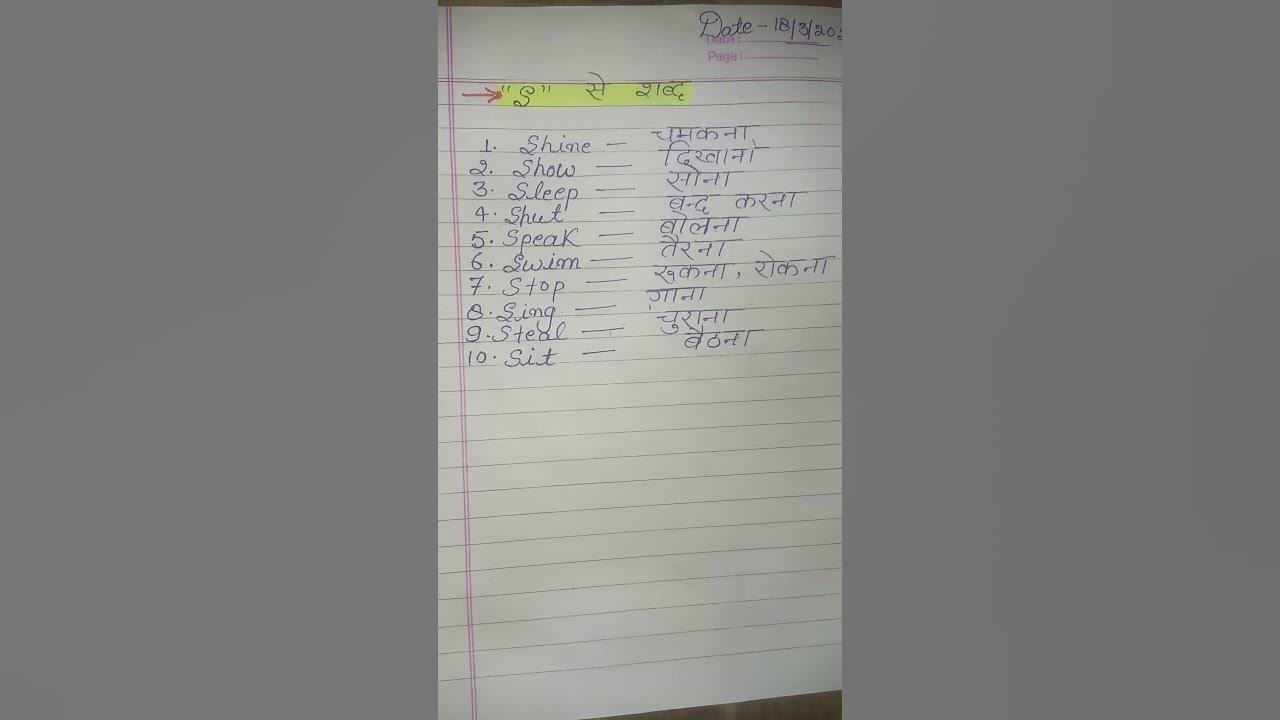 Date - 18/3/20
Date:
Page:
→ "S" से शब्द
1. Shine — चमकना
2. Show — दिखाना
3. Sleep — सोना
4. Shut — बन्द करना
5. Speak — बोलना
6. Swim — तैरना
7. Stop — रूकना, रोकना
8. Sing — गाना
9. Steal — चुराना
10. Sit — बैठना